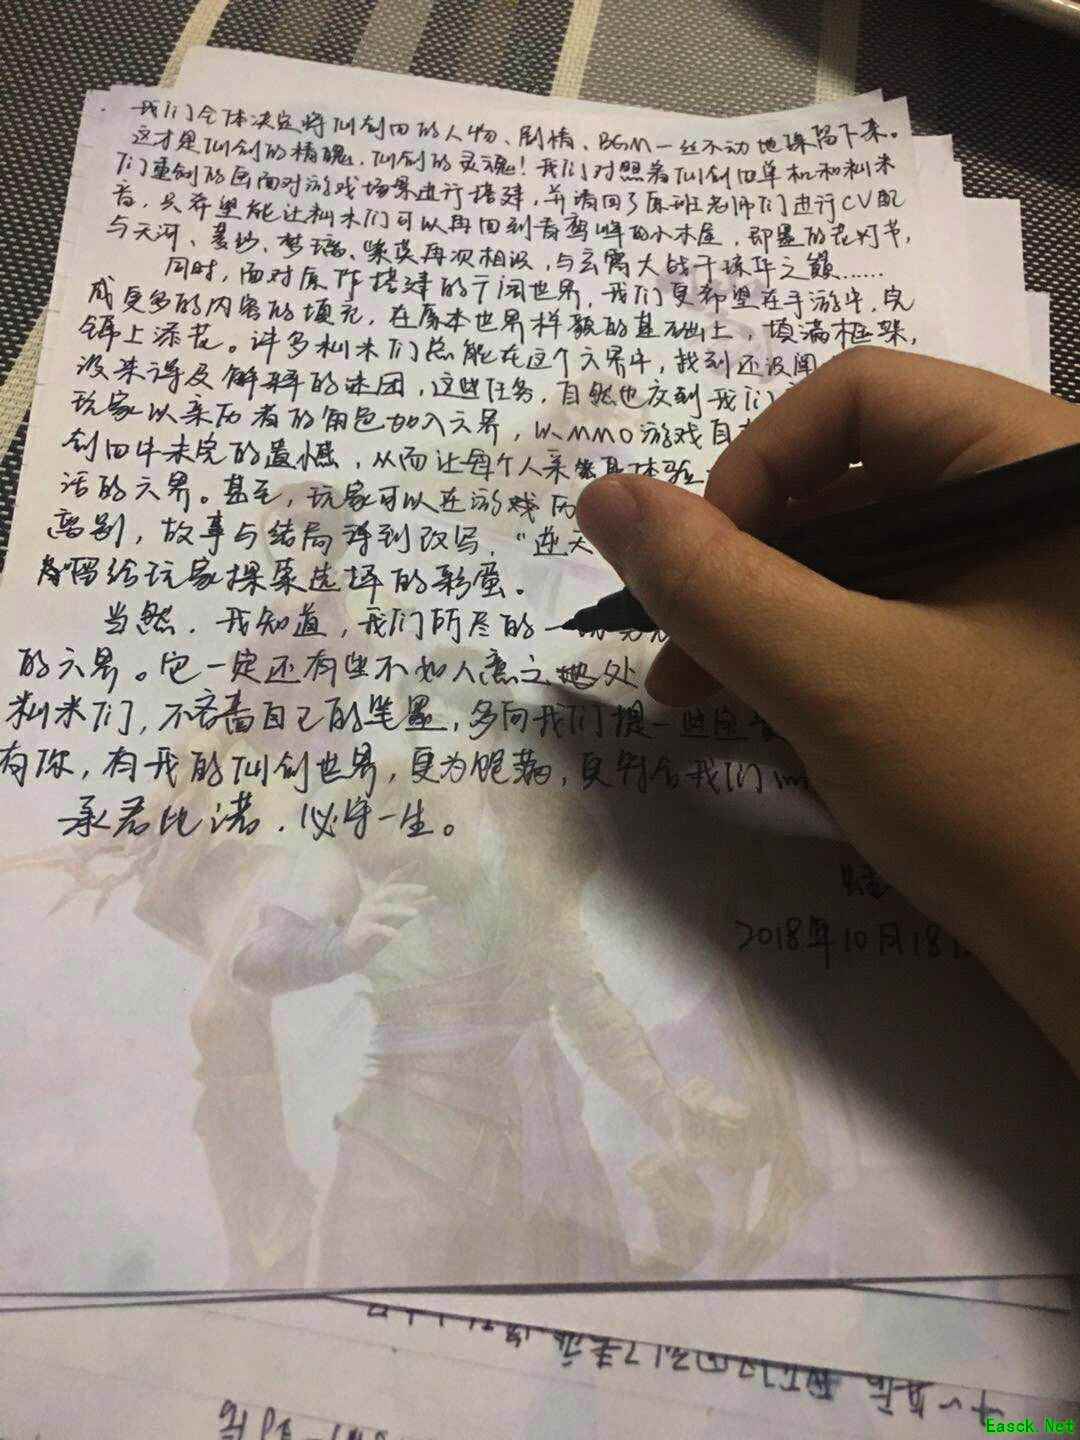 我们全体决定将仙剑四的人物、剧情、BGM一丝不动地保留下来。
这才是仙剑的精魄,仙剑的灵魂!我们对照着仙剑四单机和籼米
们重制的画面对游戏场景进行搭建,并请回了原班老师们进行CV配
音,只希望能让籼米们可以再回到青鸾峰的小木屋,即墨的花灯节,
与天河、菱纱、梦璃、紫英再次相识,与玄霄大战于琼华之巅……
同时,面对原作搭建的广阔世界,我们更希望在手游中,完
成更多的内容的填充,在原本世界样貌的基础上,填满框架,
锦上添花。许多籼米们总能在这个六界中,找到还没阐
没来得及解释的谜团,这些任务,自然也交到我们
玩家以亲历者的角色加入六界,以MMO游戏自
剑四中未完的遗憾,从而让每个人亲身体验
活的六界。甚至,玩家可以在游戏历
离别,故事与结局得到改写,“逆天
留给玩家探索选择的彩蛋。
当然,我知道,我们所尽的一
的六界。它一定还有些不如人意之处
籼米们,不吝啬自己的笔墨,多向我们提一些
有你,有我的仙剑世界,更为饱满,更符合我们
承君此诺,必守一生。
2018年10月18
Easck.Net